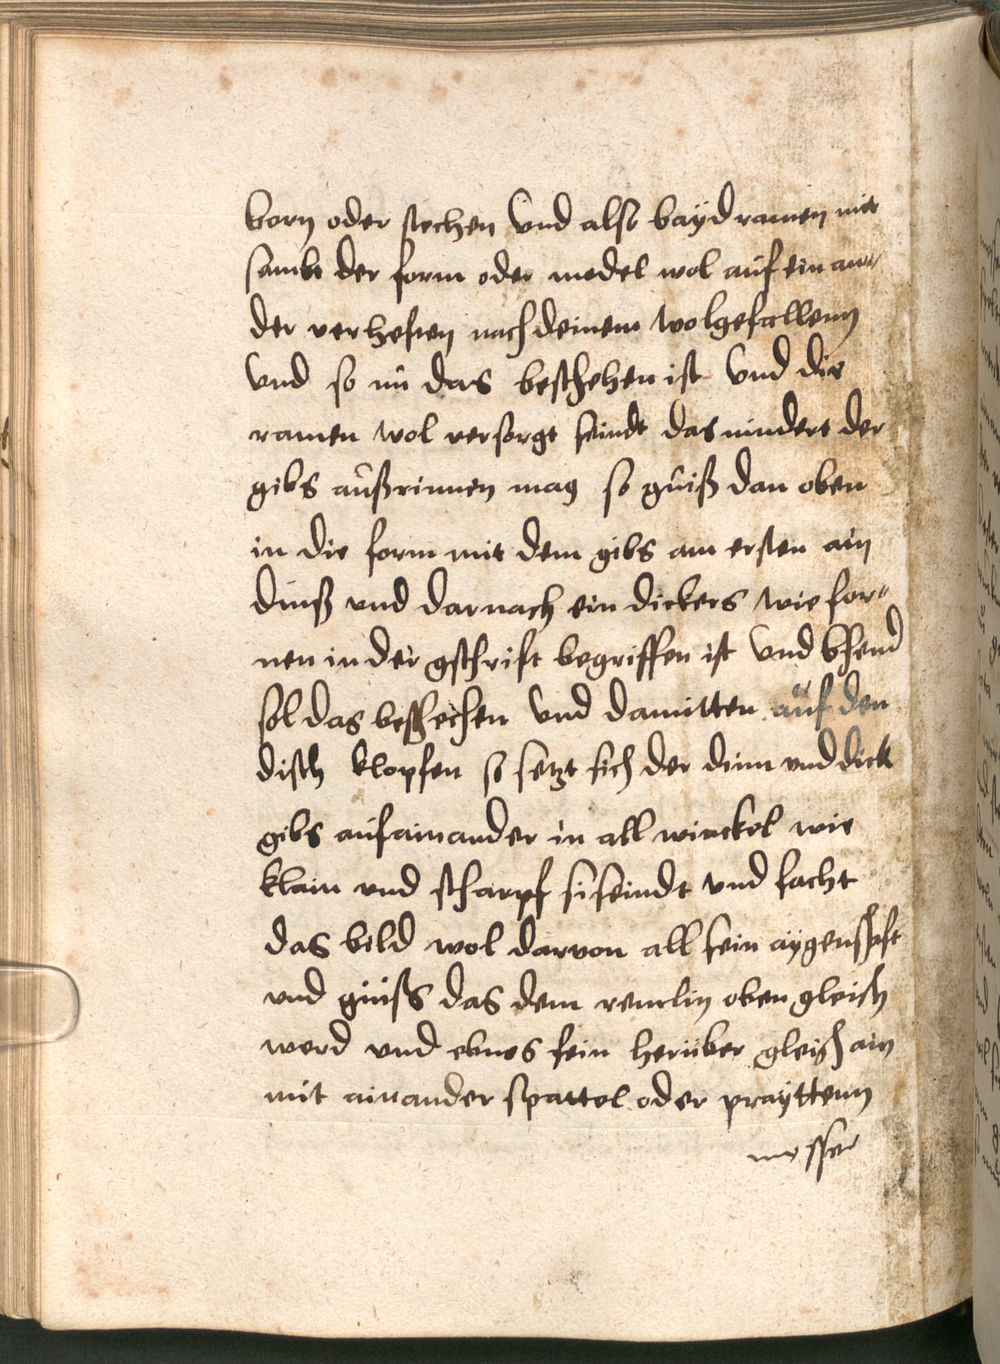 born oder stechen Und also bayd ramen mit
sambt der form oder model wol auf ein an=
der verhefften nach deinem wolgefallenn
Und so nu das beschehen ist Und die
ramen wol versorgt seindt das nindert der
gibs außrinnen mag so guiß dan oben
in die form mit dem gibs am ersten ain
dinß und darnach ein dickers wie for=
nen in der gschrift begriffen ist Und
sol das beschechen Und damitten auf den
disch klopfen so setzt sich der dinn und dick
gibs aufainander in all winckel wie
klain und scharpf si seindt und facht
das bild wol darvon all sein aygenschaft
und guiss das dem remlin oben gleich
werd und ebnes fein herüber gleich ain
mit ainander spattel oder prayttenn
messer